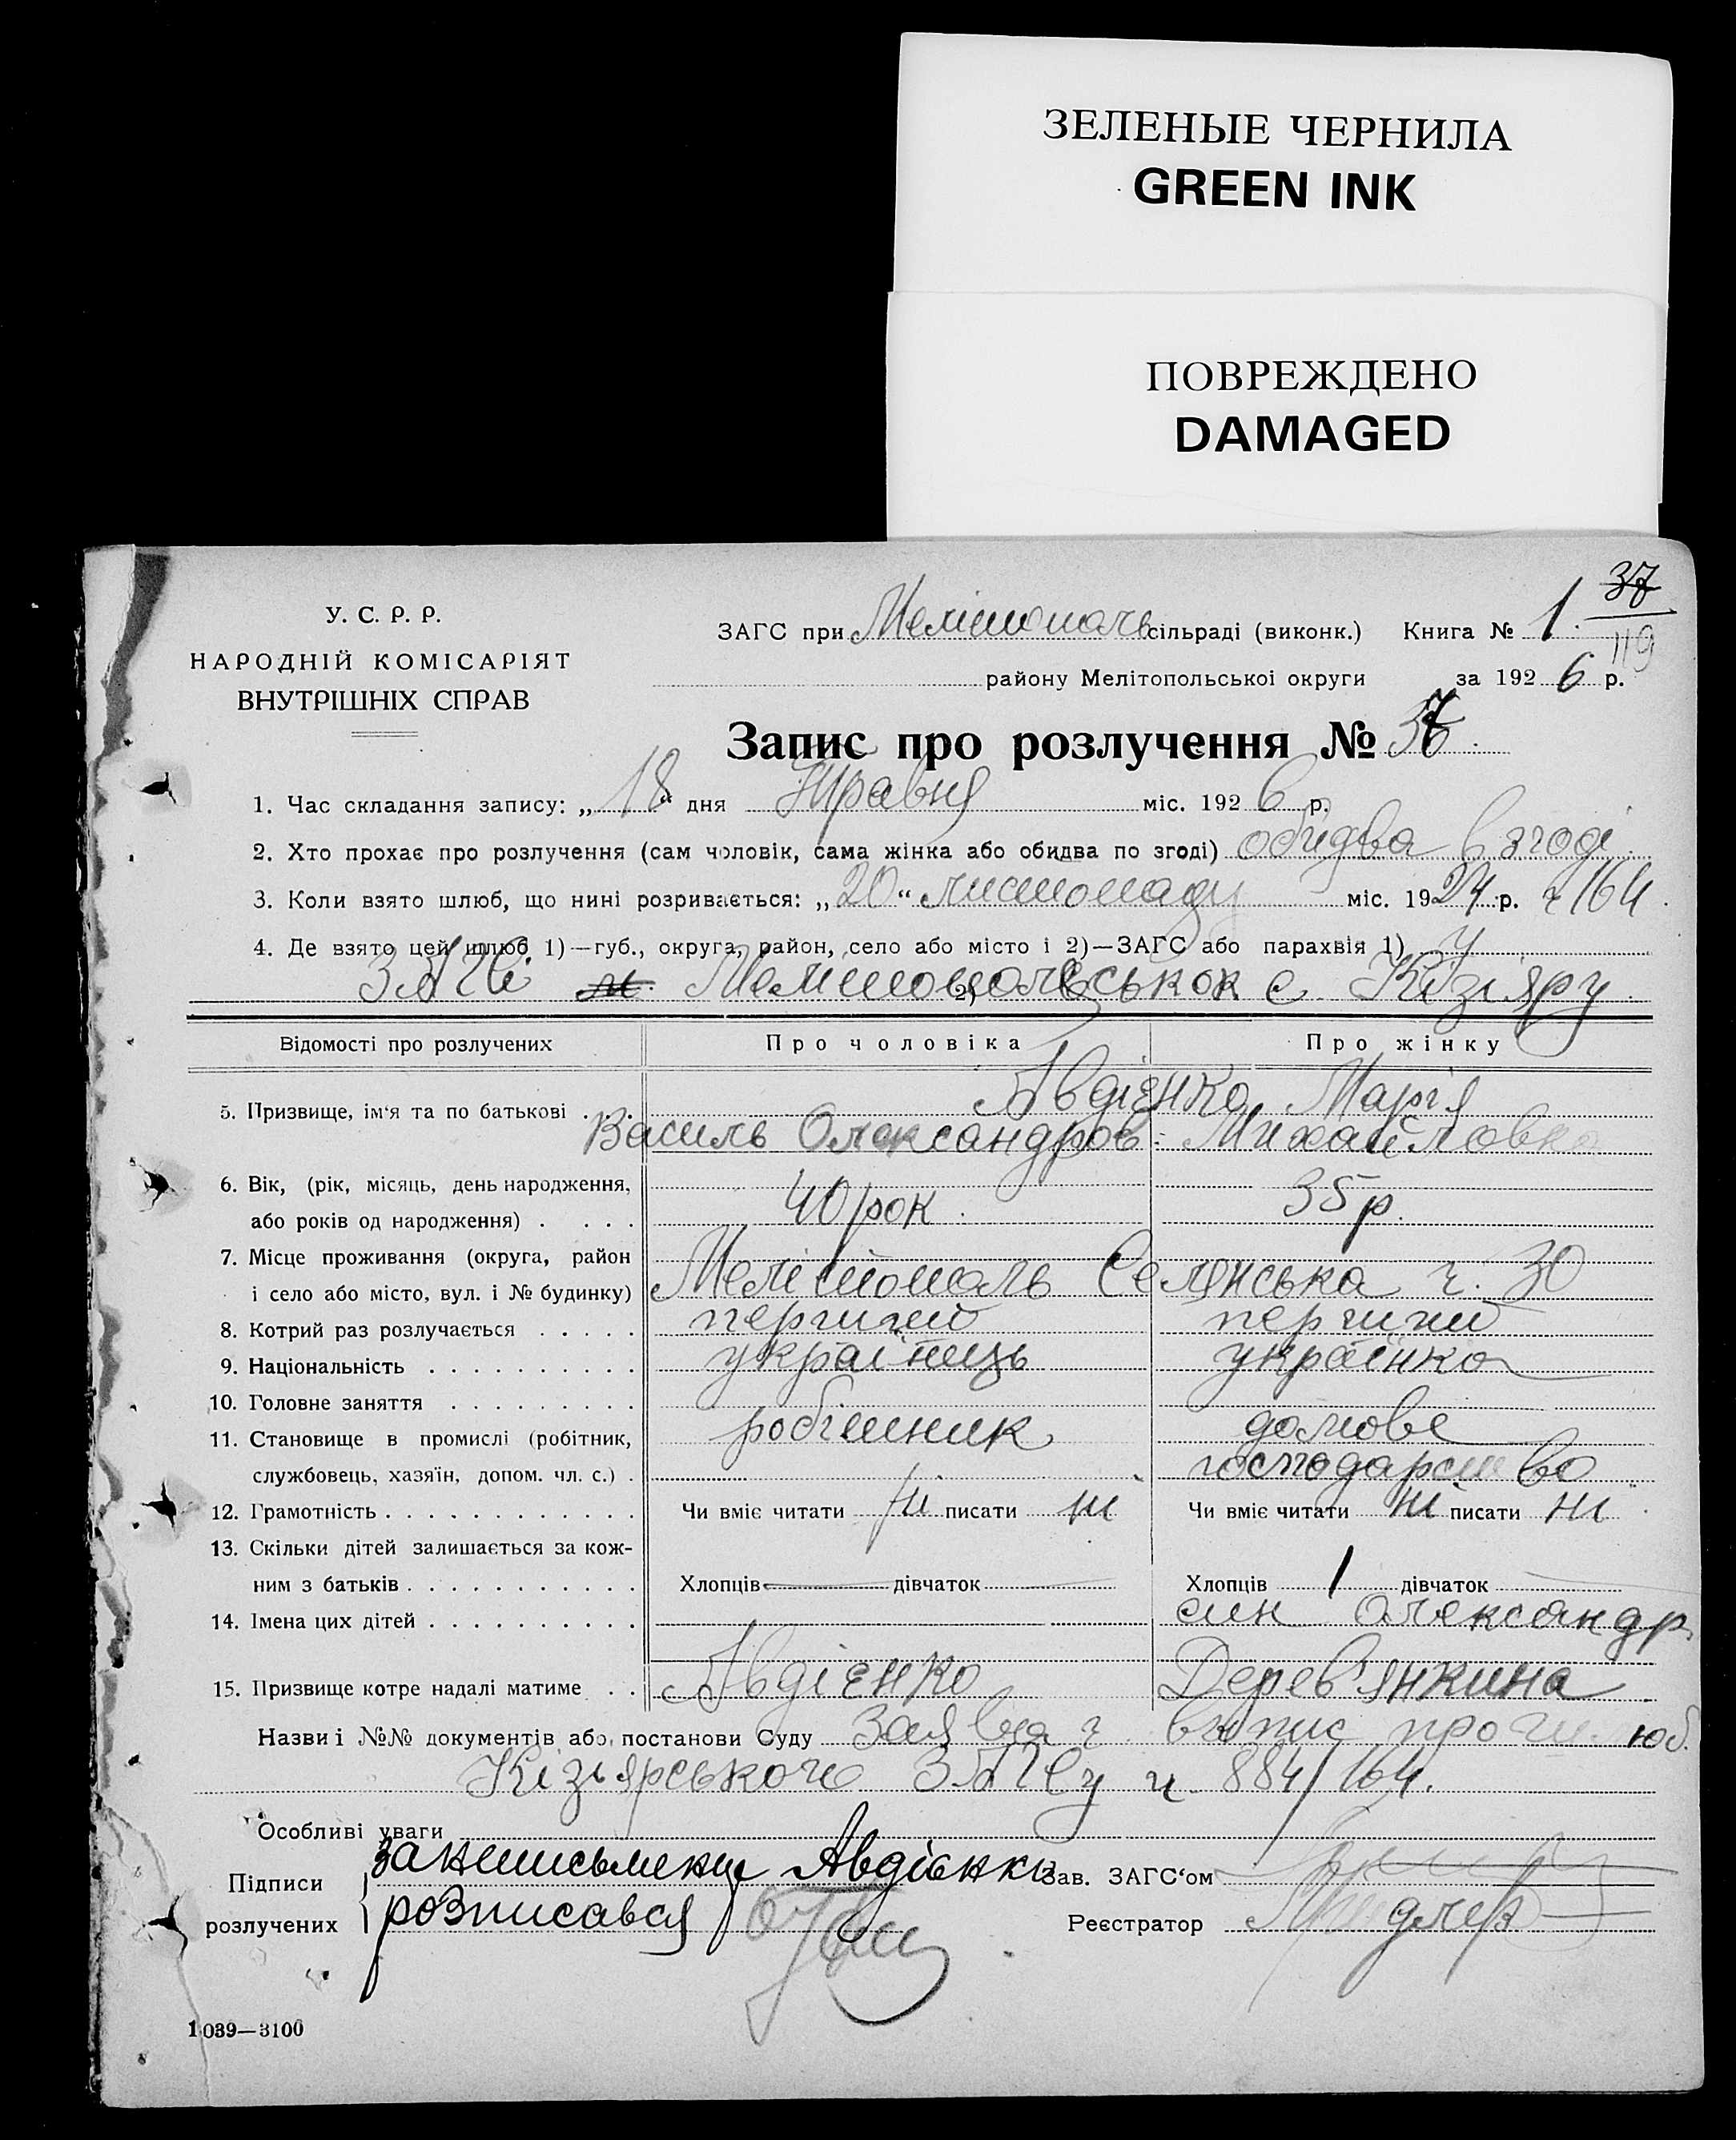 ЗЕЛЕНЫЕ ЧЕРНИЛА
GREEN INK
ПОВРЕЖДЕНО
DAMAGED
37
119
У. С. Р. Р.
НАРОДНІЙ КОМІСАРІЯТ
ВНУТРІШНІХ СПРАВ
ЗАГС при Мелітополь сільраді (виконк.) Книга № 1.
району Мелітопольської округи за 1926 р.
Запис про розлучення № 37
1. Час складання запису: „18“ дня Травня міс. 1926 р.
2. Хто прохає про розлучення (сам чоловік, сама жінка або обидва по згоді) обидва в згоді
3. Коли взято шлюб, що нині розривається: „20“ листопаду міс. 1924 р. ч 164.
4. Де взято цей шлюб 1)—губ., округа, район, село або місто і 2)—ЗАГС або парахвія 1) у
ЗАГСі 2) с. Кізіяру
Відомості про розлучених Про чоловіка Про жінку
5. Призвище, ім'я та по батькові Авдієнко Марія
Василь Олександров. Михайловна
6. Вік, (рік, місяць, день народження,
або років од народження) 40 рок. 35 р.
7. Місце проживання (округа, район
і село або місто, вул. і № будинку) Мелітополь Селянська ч. 30
8. Котрий раз розлучається перший перший
9. Національність українець українка
10. Головне заняття
11. Становище в промислі (робітник, робітник домове
службовець, хазяїн, допом. чл. с.) господарство
12. Грамотність Чи вміє читати ні писати ні Чи вміє читати ні писати ні
13. Скільки дітей залишається за кож-
ним з батьків Хлопців — дівчаток — Хлопців 1 дівчаток —
14. Імена цих дітей син Олександр
15. Призвище котре надалі матиме Авдієнко Дерев'янкина
Назви і №№ документів або постанови Суду Заява ч випис про шлюб.
Кізьярського ЗАГСу ч. 884/164.
Особливі уваги
Підписи розлучених за неписьменну Авдієнко
розписався
Зав. ЗАГС'ом
Реєстратор
1039—3100